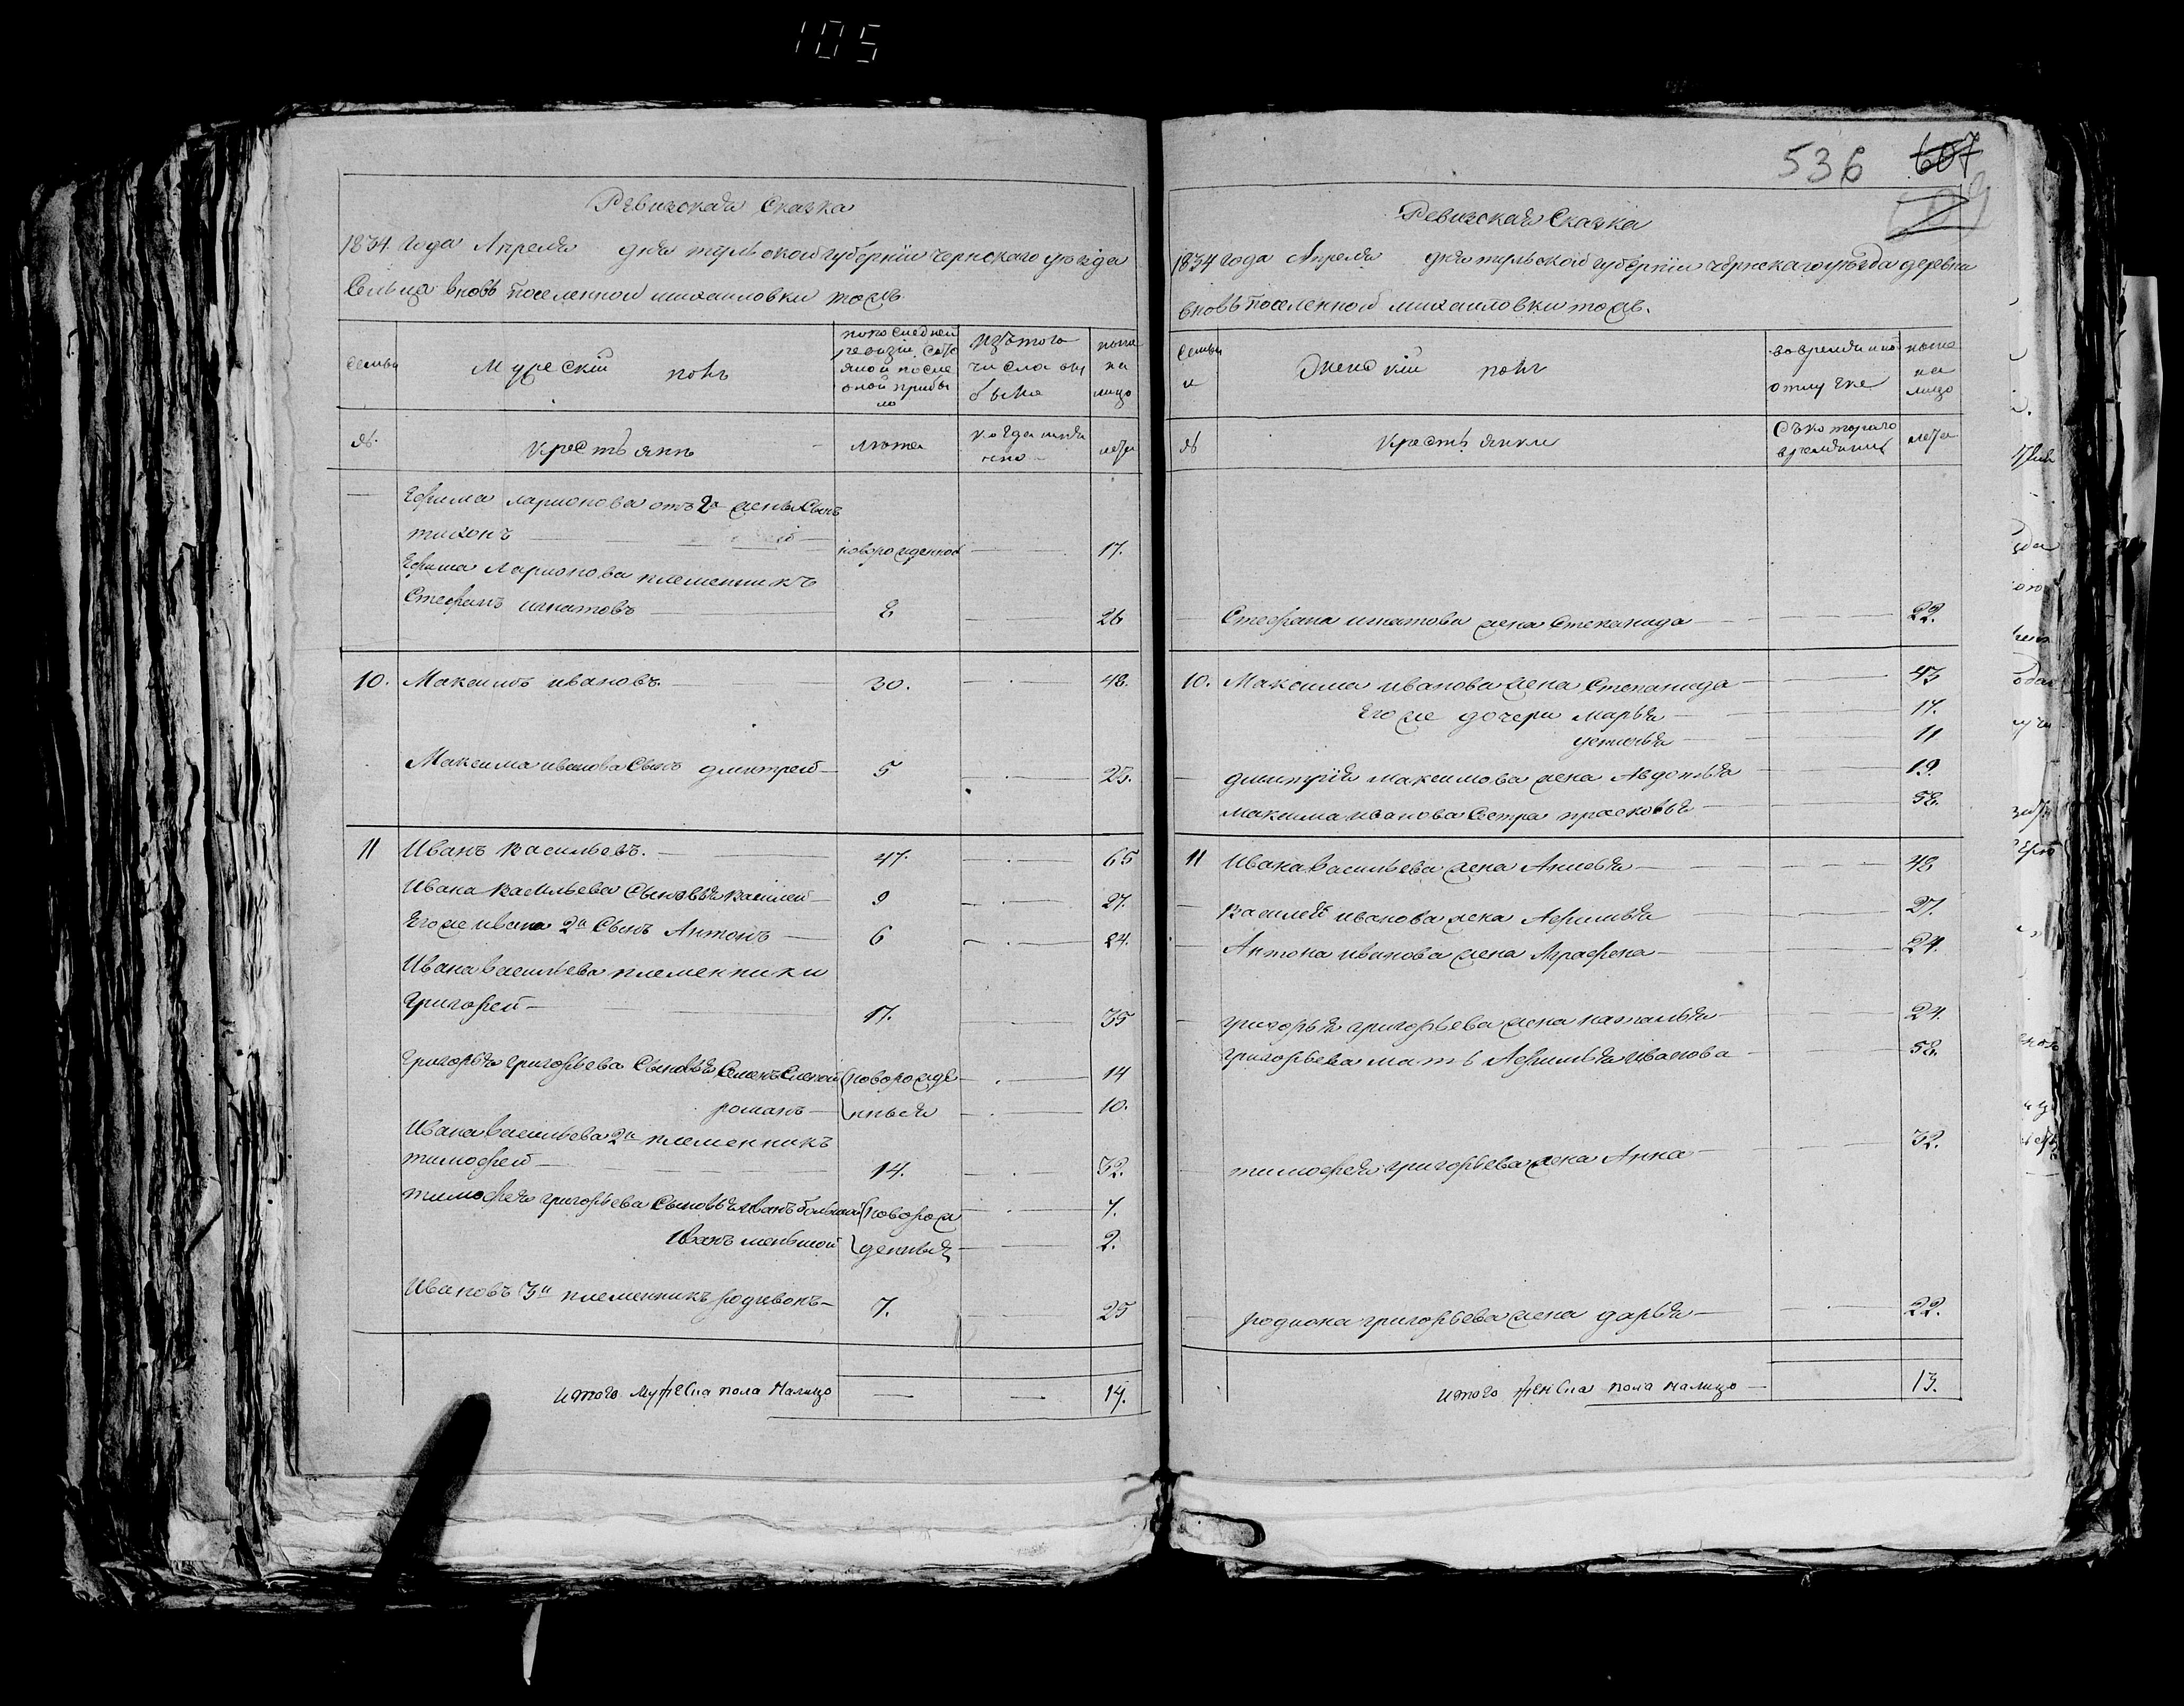 105
Ревизская Сказка
1834 года Апреля дня тульской губернии чернскаго уезда
Сельца вновь поселенной михаиловки тожъ
Семьи
Мужескій полъ
по последней ревизіи состояло и после оной прибыло
Изъ того числа выбыло
ныне на лицо
№.
Крестьяне
лета
когда имянно
лета
Ефима ларионова отъ 2й жены Сынъ
тихонъ — новорожденной — 17.
Ефима Ларионова племенникъ
Стефанъ игнатовъ — 8 — 26
10. Максимъ ивановъ. — 30. — 48.
Максима иванова Сынъ дмитрей — 5 — 23.
11 Иванъ васильевъ. — 47. — 65
Ивана васильева Сыновья василей — 9 — 27.
Егоже ивана 2й Сынъ Антонъ — 6 — 24.
Ивана васильева племенники
григорей — 17. — 35
григорья григорьева Сыновья Семенъ (новорожде — 14
романъ — нныя — 10.
Ивана васильева 2й племенникъ
тимофей — 14. — 32.
тимофея григорьева Сыновья иванъ большой (новорож — 7.
Иванъ меньшой (денныя — 2.
Ивановъ 3й племенникъ родивонъ — 7. — 25
итого мужеска пола налицо — — 14.
536 607
Ревизская Сказка
1834 года Апреля дня тульской губерніи чернскаго уезда деревни
вновь поселенной михаиловки тожъ.
Семьи
Женскій полъ
во временной отлучке
ныне на лицо
№
Крестьянки
Съ котораго времяни
лета
Стефана игнатова жена Степанида — 22.
10. Максима иванова жена Степанида — 43
Егоже дочери Марья — 17.
устинья — 11
дмитрія максимова жена Авдотья — 19.
максима иванова Сестра прасковья — 58.
11 Ивана васильева жена Анисья — 48
василья иванова жена Афимья — 27.
Антона иванова жена Аграфена — 24.
григорья григорьева жена наталья — 24
григорьева мать Афимья иванова — 58.
тимофея григорьева жена Анна — 32.
родиона григорьева жена дарья — 22.
итого женска пола налицо — 13.